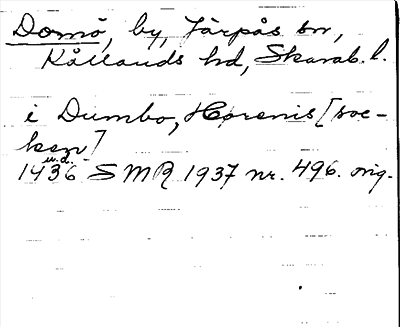 Domö, by, Järpås sn,
Kållands hd, Skarab. l.
i Dumbo, Hørenis [soc-
ken]
u.d.
1436 SMR 1937 nr. 496. orig.